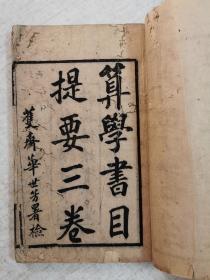 算學書目
提要三卷
蓘齋華世芳署檢